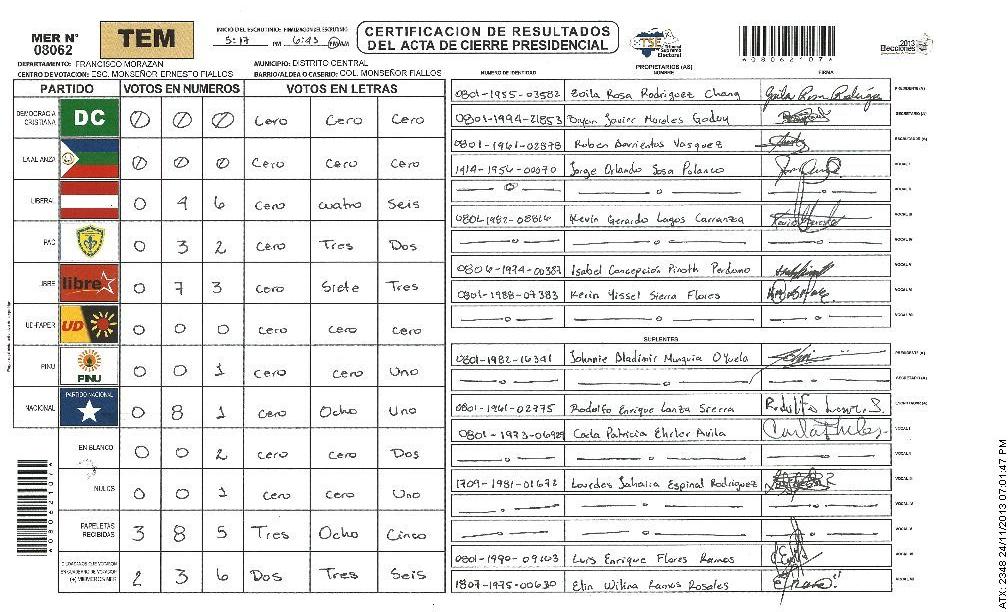 MER N° 08062
TEM
INICIO DEL ESCRUTINIO FINALIZACION DEL ESCRUTINIO
5:17 PM 6:43
CERTIFICACION DE RESULTADOS
DEL ACTA DE CIERRE PRESIDENCIAL
TSE Tribunal Supremo Electoral
080621074
2013 Elecciones
DEPARTAMENTO: FRANCISCO MORAZAN MUNICIPIO: DISTRITO CENTRAL
CENTRO DE VOTACION: ESC. MONSEÑOR ERNESTO FIALLOS BARRIO/ALDEA O CASERIO: COL. MONSEÑOR FIALLOS
PARTIDO VOTOS EN NUMEROS VOTOS EN LETRAS
DEMOCRACIA CRISTIANA DC 0 0 0 Cero Cero Cero
LA ALIANZA 0 0 0 Cero Cero Cero
LIBERAL 0 4 6 Cero Cuatro Seis
PAC 0 3 2 Cero Tres Dos
LIBRE libre 0 7 3 Cero Siete Tres
UD-FAPER UD 0 0 0 Cero Cero Cero
PINU PINU 0 0 1 Cero Cero Uno
NACIONAL PARTIDO NACIONAL 0 8 1 Cero Ocho Uno
EN BLANCO 0 0 2 Cero Cero Dos
NULOS 0 0 1 Cero Cero Uno
PAPELETAS RECIBIDAS 3 8 5 Tres Ocho Cinco
2 3 6 Dos Tres Seis
PROPIETARIOS (AS)
NUMERO DE IDENTIDAD NOMBRE FIRMA
0801-1955-03582 Zoila Rosa Rodriguez Chang PRESIDENTE (A)
0801-1994-21853 Bryan Javier Morales Godoy SECRETARIO (A)
0801-1961-02878 Ruben Barrientos Vasquez ESCRUTADOR (A)
1414-1956-00070 Jorge Orlando Sosa Polanco VOCAL I
VOCAL II
0801-1982-08816 Kevin Gerardo Lagos Carranza VOCAL III
VOCAL IV
0806-1974-00387 Isabel Concepción Pinoth Perdomo VOCAL V
0801-1988-07383 Kerin Yissel Sierra Flores VOCAL VI
VOCAL VII
SUPLENTES
0801-1982-16341 Johnnie Bladimir Munguia Oyuela PRESIDENTE (A)
SECRETARIO (A)
0801-1961-02775 Rodolfo Enrique Lanza Sierra ESCRUTADOR (A)
0801-1973-06929 Carla Patricia Ehrler Avila VOCAL I
VOCAL II
1709-1981-01672 Lourdes Jahaira Espinal Rodriguez VOCAL III
VOCAL IV
VOCAL V
0801-1990-09163 Luis Enrique Flores Ramos VOCAL VI
1807-1975-00630 Elin Wilina Ramos Rosales VOCAL VII
080621074
ATX: 2348 24/11/2013 07:01:47 PM